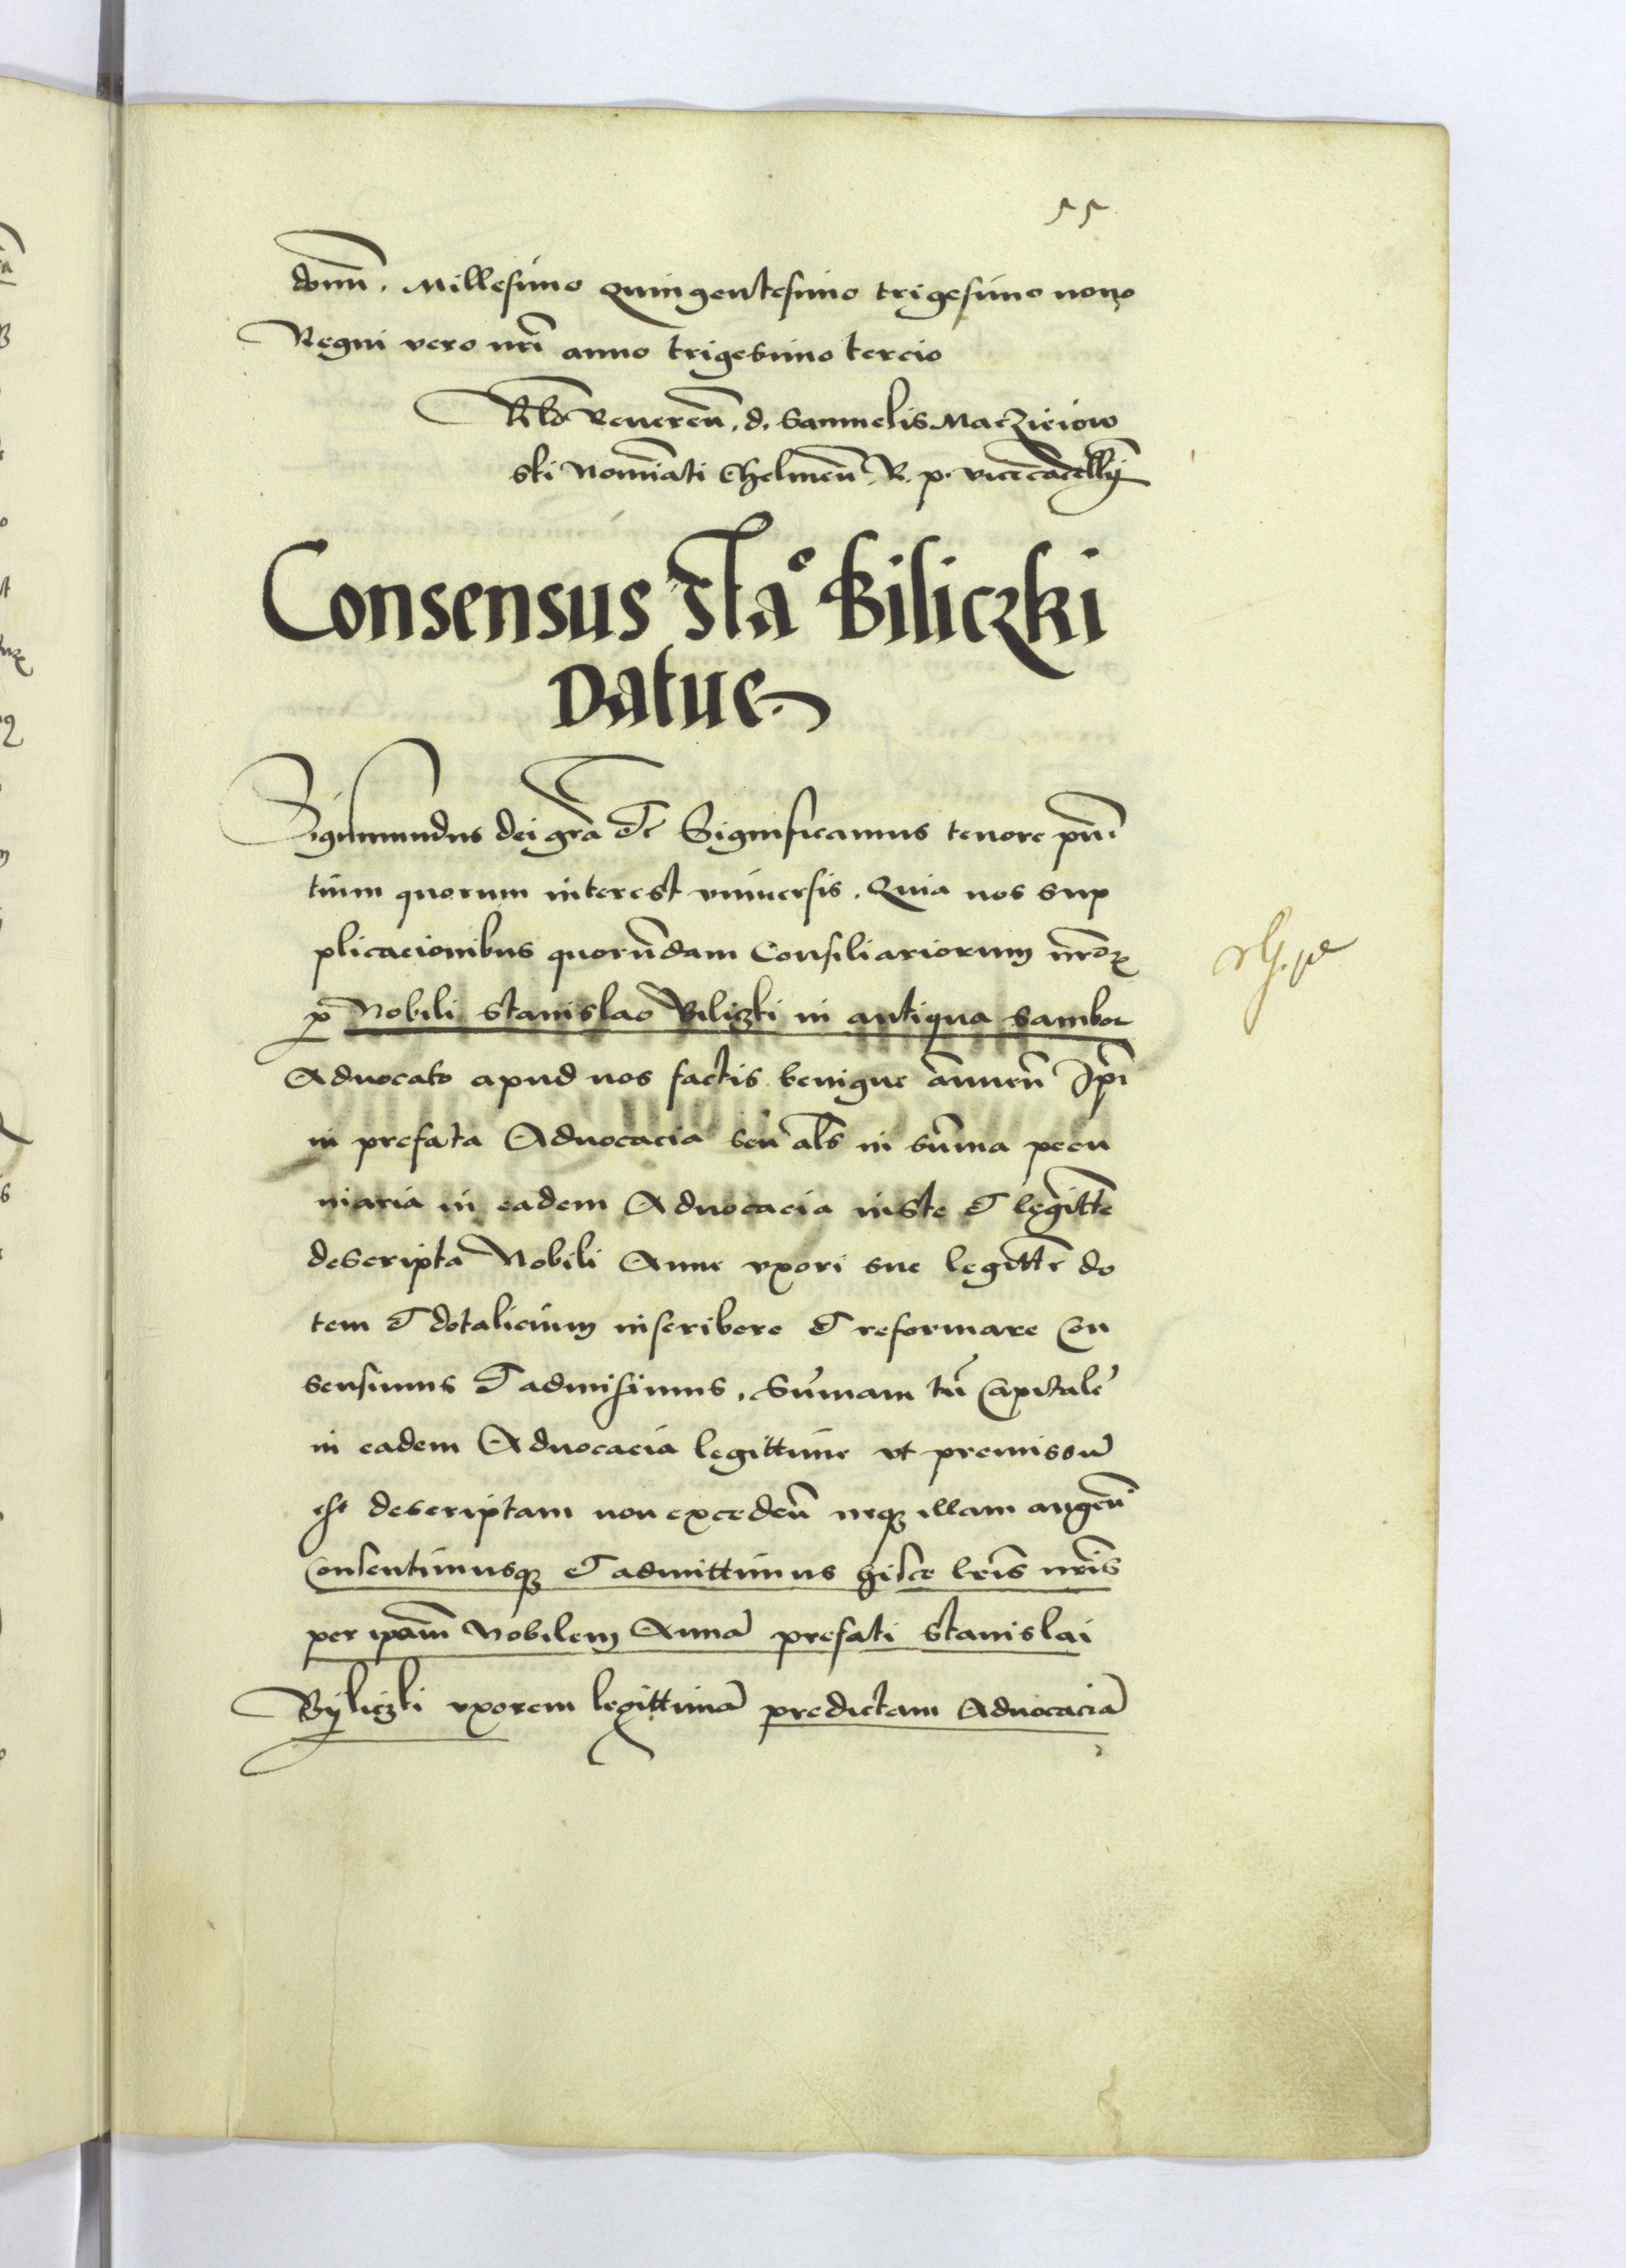 55
domi. Millesimo Quingentesimo trigesimo nono
Regni vero nri anno trigesimo tercio
Rlo Reveren. d. Samuelis Maczieiow
ski Nominati Chelmen. R. p. vicecacellij
Consensus Sta° Biliczki
Datur
Sigismundus dei gra et Significamus tenore pn̄
tium quorum interest vniuersis. Quia nos sup
plicacionibus quorundam Consiliariorum nror
p Nobili Stanislao Biliczki in antiqua Sambor
Aduocato apud nos factis benigne annuen Ipi
in prefata Aduocacia seu als in suma pecu
niaria in eadem Aduocacia iuste et legittie
descripta Nobili Anne vxori sue legitte do
tem et dotalicium inscribere et reformare Con
sensimus et admisimus. Sumam tn Capitale
in eadem Aduocacia legittime vt premissu
est descriptam non exceden neqz illam augen
Consentimusqz et admittimus hisce lris nris
per ipam Nobilem Anna prefati Stanislai
Byliczki vxorem legittima predictam Aduocacia